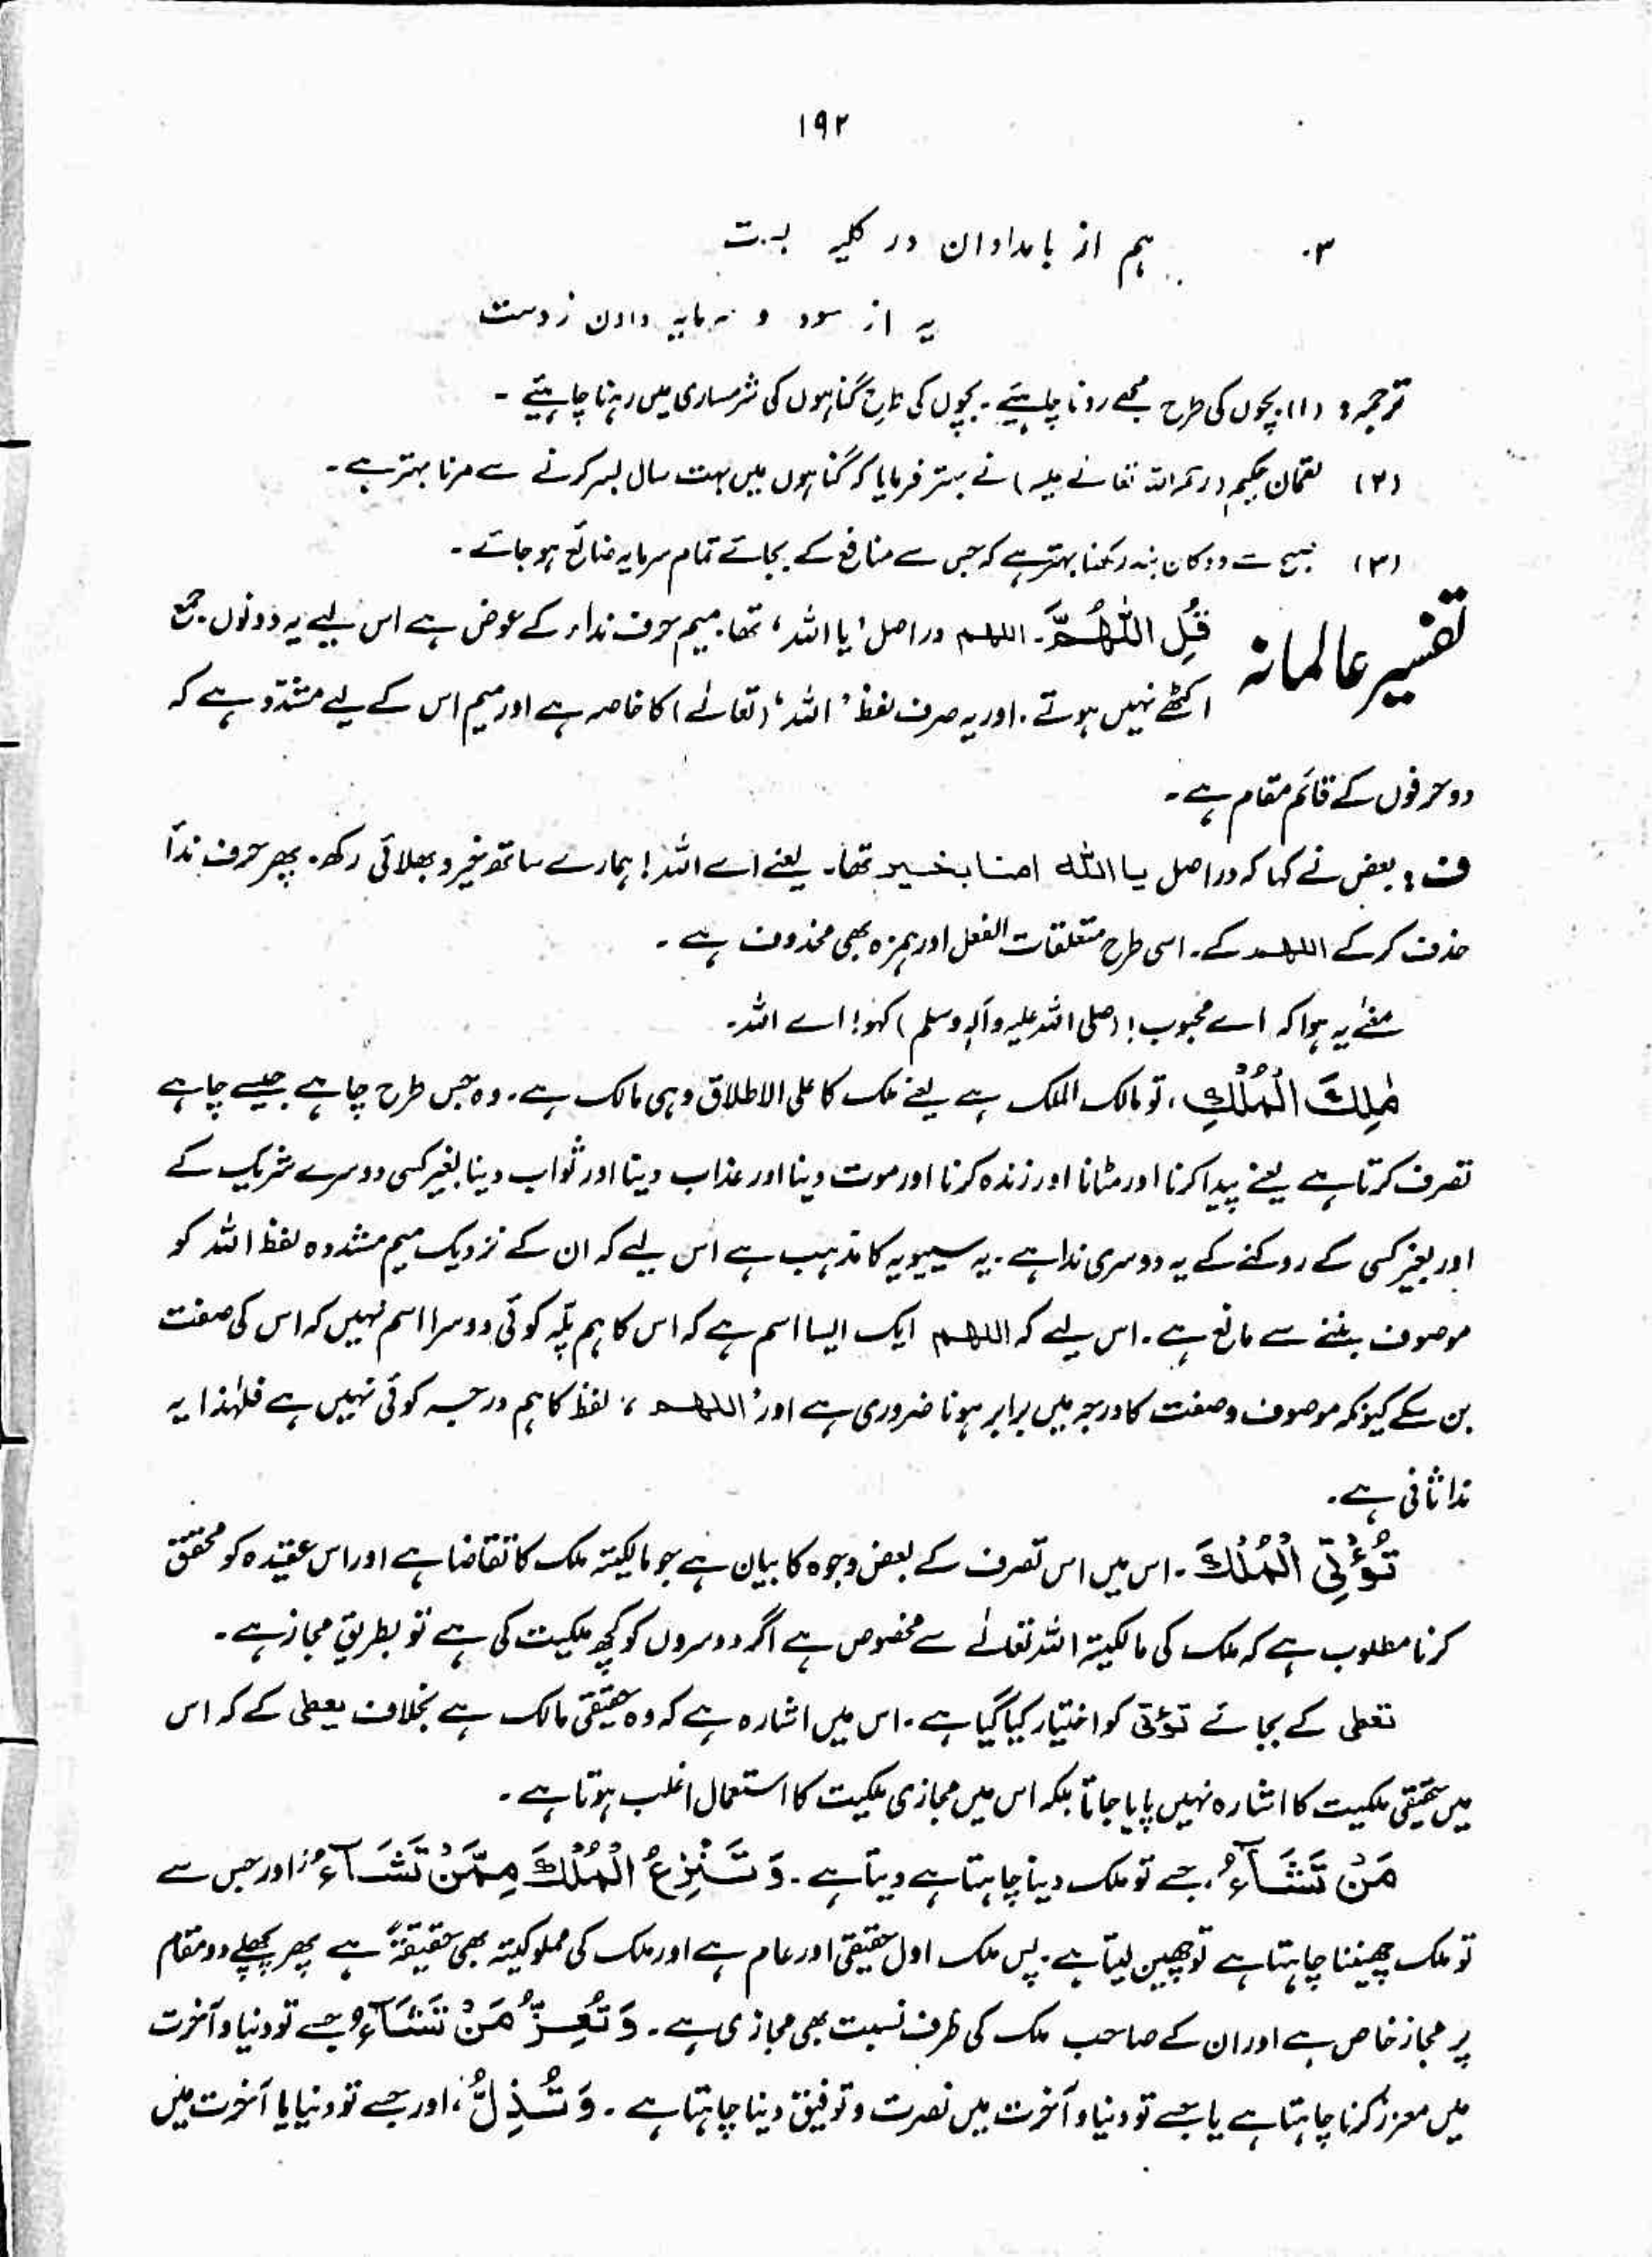 ۱۹۲
۳. ہم از بامداوان در کلبہ بست
بہ از سود و سرمایہ دادن زدست
ترجمہ: (۱) بچوں کی طرح مجھے رونا چاہیئے۔ بچوں کی طرح گناہوں کی شرمساری میں رہنا چاہیئے۔
(۲) لقمان حکیم (رحمہ اللہ تعالٰے علیہ) نے بہتر فرمایا کہ گناہوں میں بہت سال بسر کرنے سے مرنا بہتر ہے۔
(۳) صبح سے دوکان بند رکھنا بہتر ہے کہ جس سے منافع کے بجائے تمام سرمایہ ضائع ہو جائے۔
تفسیر عالمانہ قُلِ اللّٰهُمَّ۔ اللھم دراصل 'یا اللہ' تھا۔ میم حرف نداء کے عوض ہے اس لیے یہ دونوں جمع
اکٹھے نہیں ہوتے۔ اور یہ صرف لفظ 'اللہ' (تعالٰے) کا خاصہ ہے اور میم اس کے لیے مشدّد ہے کہ
دو حرفوں کے قائم مقام ہے۔
ف: بعض نے کہا کہ دراصل یا اللہ امنا بخیر تھا۔ یعنے اے اللہ! ہمارے ساتھ خیر و بھلائی رکھ۔ پھر حرف ندا
حذف کر کے اللھم کے۔ اسی طرح متعلقات الفعل اور ہمزہ بھی محذوف ہے۔
معنٰے یہ ہوا کہ اے محبوب! (صلی اللہ علیہ وآلہٖ وسلم) کہو! اے اللہ۔
مٰلِكَ الْمُلْكِ، تو مالک الملک ہے یعنے ملک کا علی الاطلاق وہی مالک ہے۔ وہ جس طرح چاہے جیسے چاہے
تصرف کرتا ہے یعنے پیدا کرنا اور مٹانا اور زندہ کرنا اور موت دینا اور عذاب دینا اور ثواب دینا بغیر کسی دوسرے شریک کے
اور بغیر کسی کے روکنے کے یہ دوسری ندا ہے۔ یہ سیبویہ کا مذہب ہے اس لیے کہ ان کے نزدیک میم مشددہ لفظ اللہ کو
موصوف بننے سے مانع ہے۔ اس لیے کہ اللھم ایک ایسا اسم ہے کہ اس کا ہم پلّہ کوئی دوسرا اسم نہیں کہ اس کی صفت
بن سکے کیونکہ موصوف و صفت کا درجہ میں برابر ہونا ضروری ہے اور 'اللھم' لفظ کا ہم درجہ کوئی نہیں ہے فلہٰذا یہ
ندا ثانی ہے۔
تُؤْتِی الْمُلْكَ۔ اس میں اس تصرف کے بعض وجوہ کا بیان ہے جو مالکیۃ ملک کا تقاضا ہے اور اس عقیدہ کو محقق
کرنا مطلوب ہے کہ ملک کی مالکیۃ اللہ تعالٰے سے مخصوص ہے اگر دوسروں کو کچھ ملکیت کی ہے تو بطریق مجاز ہے۔
تعطی کے بجائے تؤتی کو اختیار کیا گیا ہے۔ اس میں اشارہ ہے کہ وہ حقیقی مالک ہے بخلاف یعطی کے کہ اس
میں حقیقی ملکیت کا اشارہ نہیں پایا جاتا بلکہ اس میں مجازی ملکیت کا استعمال اغلب ہوتا ہے۔
مَنْ تَشَآءُ، جسے تو ملک دینا چاہتا ہے دیتا ہے۔ وَ تَنْزِعُ الْمُلْكَ مِمَّنْ تَشَآءُ: اور جس سے
تو ملک چھیننا چاہتا ہے تو چھین لیتا ہے۔ پس ملک اول حقیقی اور عام ہے اور ملک کی مملوکیۃ بھی حقیقۃً ہے پھر پچھلے دو مقام
پر مجاز خاص ہے اور ان کے صاحب ملک کی طرف نسبت بھی مجازی ہے۔ وَ تُعِزُّ مَنْ تَشَآءُ جسے تو دنیا و آخرت
میں معزز کرنا چاہتا ہے یا جسے تو دنیا و آخرت میں نصرت و توفیق دینا چاہتا ہے۔ وَ تُذِلُّ، اور جسے تو دنیا یا آخرت میں